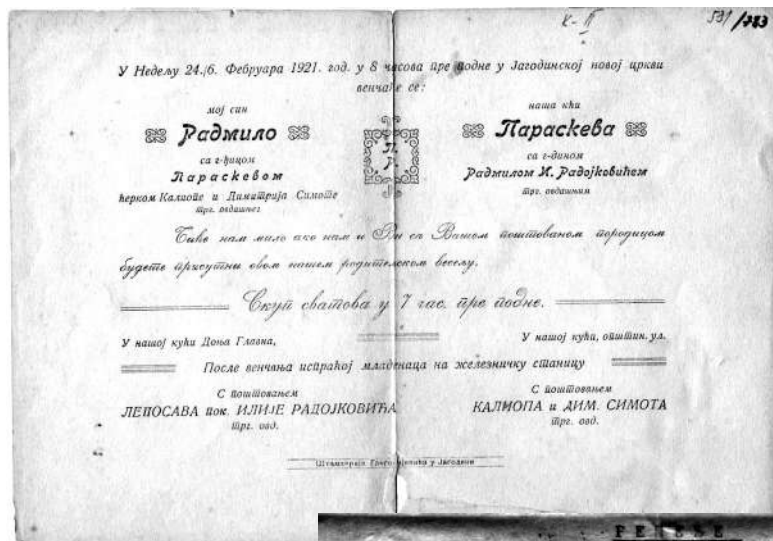 К-II
531/783
У Недељу 24./6. Фебруара 1921. год. у 8 часова пре подне у Јагодинској новој цркви
венчаће се:
мој син
Радмило
са г-ђицом
Параскевом
ћерком Калиопе и Димитрија Симоте
трг. овдашњег
П.
Р.
наша кћи
Параскева
са г-дином
Радмилом И. Радојковићем
трг. овдашњим
Биће нам мило ако нам и Ви са Вашом поштованом породицом
будете присутни овом нашем родитељском весељу.
Скуп сватова у 7 час. пре подне.
У нашој кући Доња Главна,
У нашој кући, општин. ул.
После венчања испраћој младенаца на железничку станицу
С поштовањем
ЛЕПОСАВА пок. ИЛИЈЕ РАДОЈКОВИЋА
трг. овд.
С поштовањем
КАЛИОПА и ДИМ. СИМОТА
трг. овд.
Штампарија у Јагодини